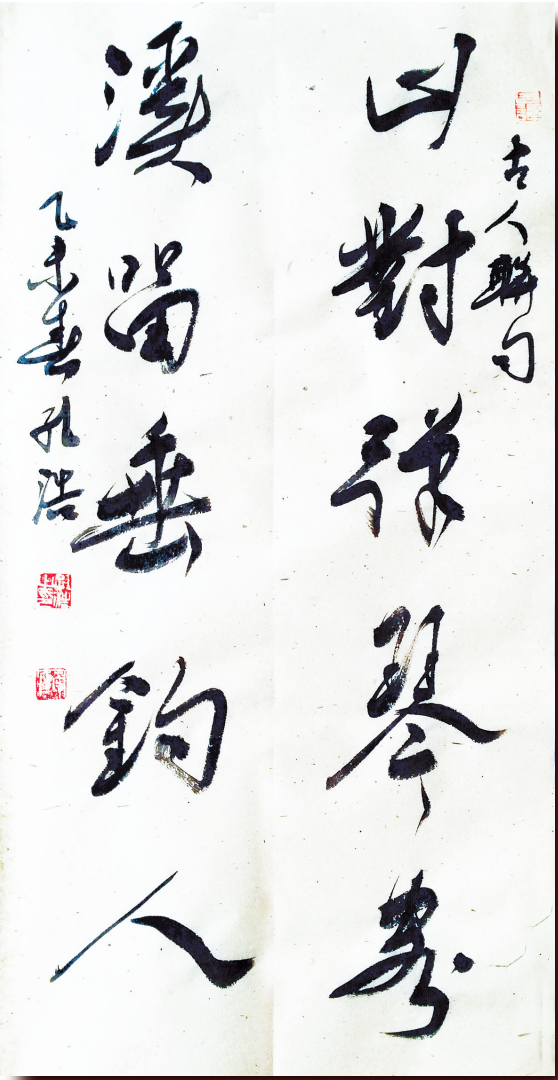 古人聯句
山對彈琴客
溪留垂釣人
乙未春孔浩